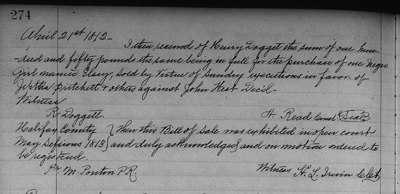 274
April 21st 1812 -
I then received of Henry Dogget the sum of one hun
-dred and fifty pounds the same being in full for the purchase of one Negro
Girl named Elsey, sold by Virtue of Sundry executions in favor of
Jeptha Pritchett & others against John West Decd.
Witness
R Doggett H Read Const Seal
Halifax County } Then this Bill of Sale was exhibited in open court
May Sessions 1813 } and duly acknowledged and on motion ordered to
be registered.
Pr M. Ponton P.R. Witness H. L. Irwin Clk